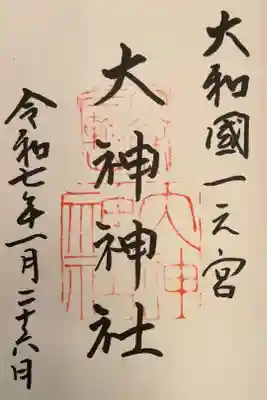 大和國一之宮
大神神社
令和七年一月二十六日